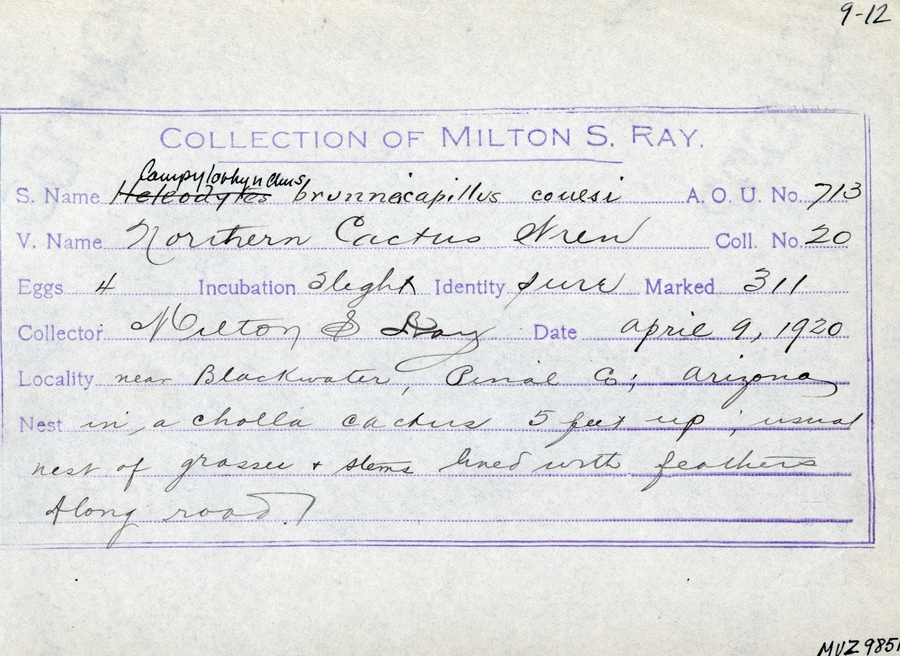 9-12
COLLECTION OF MILTON S. RAY.
Campylorhynchus
S. Name Heleodytes brunneicapillus couesi A. O. U. No. 713
V. Name Northern Cactus Wren Coll. No. 20
Eggs 4 Incubation Slight Identity sure Marked 311
Collector Milton S Ray Date April 9, 1920
Locality near Blackwater, Pinal Co; Arizona
Nest in a cholla cactus 5 feet up; usual
nest of grasses + stems lined with feathers
Along road.
MVZ 985